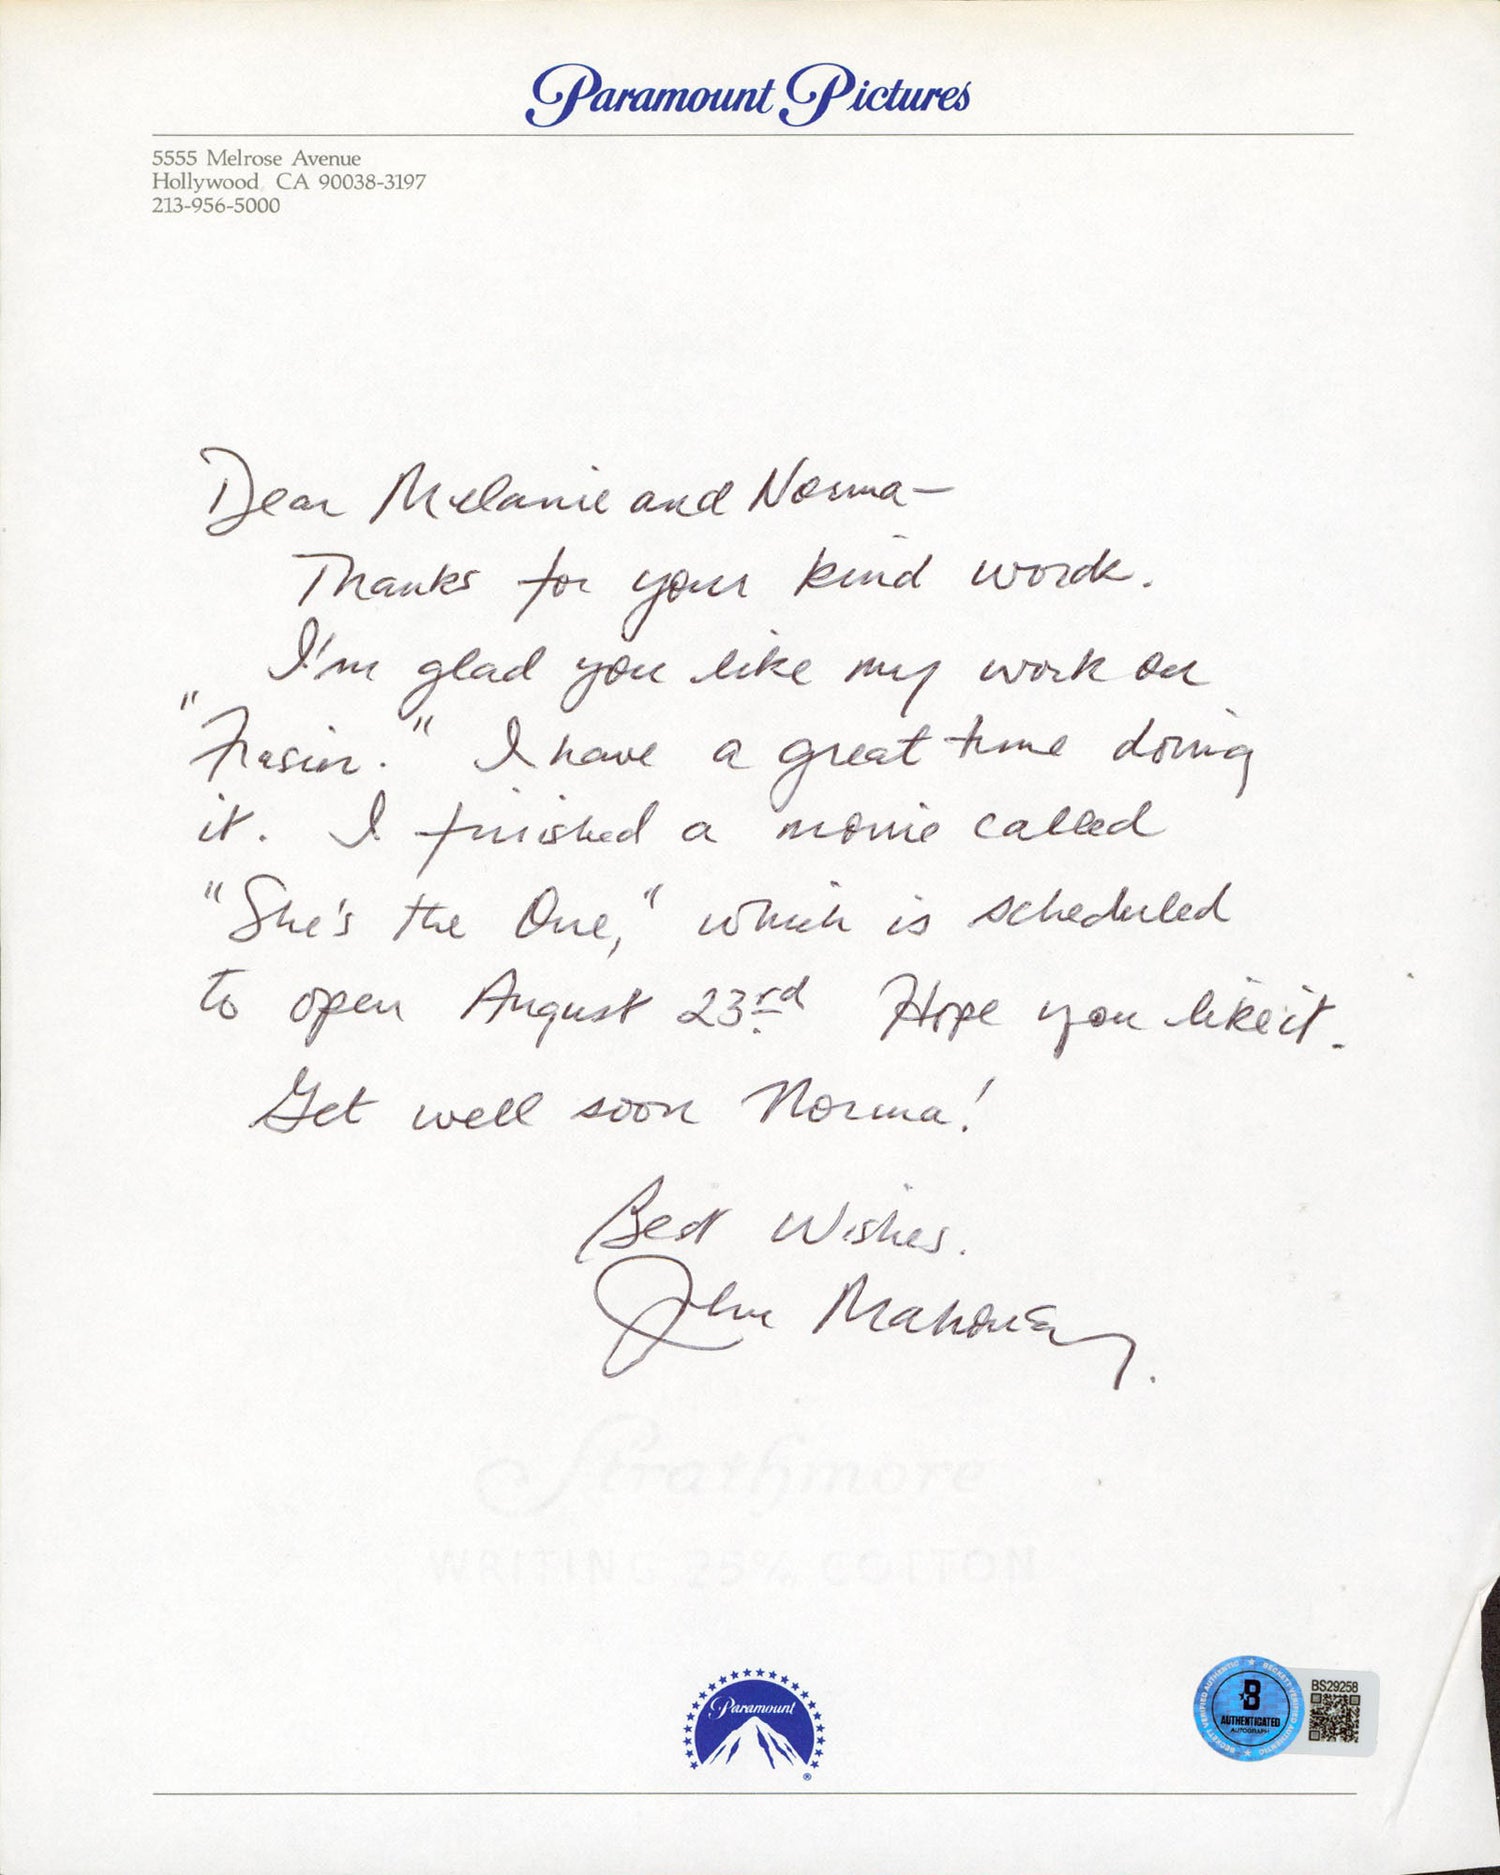 Paramount Pictures
5555 Melrose Avenue
Hollywood, CA 90038-3197
213-956-5000
Dear Melanie and Norma—
Thanks for your kind words.
I'm glad you like my work on
"Frasier." I have a great time doing
it. I finished a movie called
"She's the One," which is scheduled
to open August 23rd. Hope you like it.
Get well soon Norma!
Best Wishes.
John Mahoney.
Strathmore
WRITING 25% COTTON
Paramount
®
BECKETT VERIFIED AUTHENTIC ★ BECKETT VERIFIED AUTHENTIC ★
B
AUTHENTICATED
AUTOGRAPH
BS29258